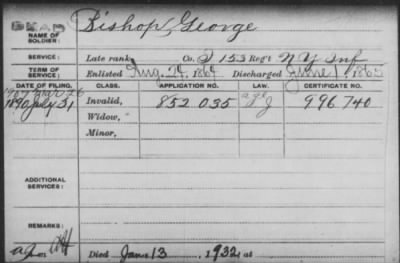 DEAD
NAME OF SOLDIER: Bishop, George
SERVICE: Late rank, Co. I 153 Reg't N.Y. Inf
TERM OF SERVICE: Enlisted Aug. 29, 1864 Discharged June 1, 1865
DATE OF FILING. CLASS. APPLICATION NO. LAW. CERTIFICATE NO.
1907 Mar 26
1890 July 31 Invalid, 852 035 age 996 740
Widow,
Minor,
ADDITIONAL SERVICES:
REMARKS:
Died June 13, 1932, at